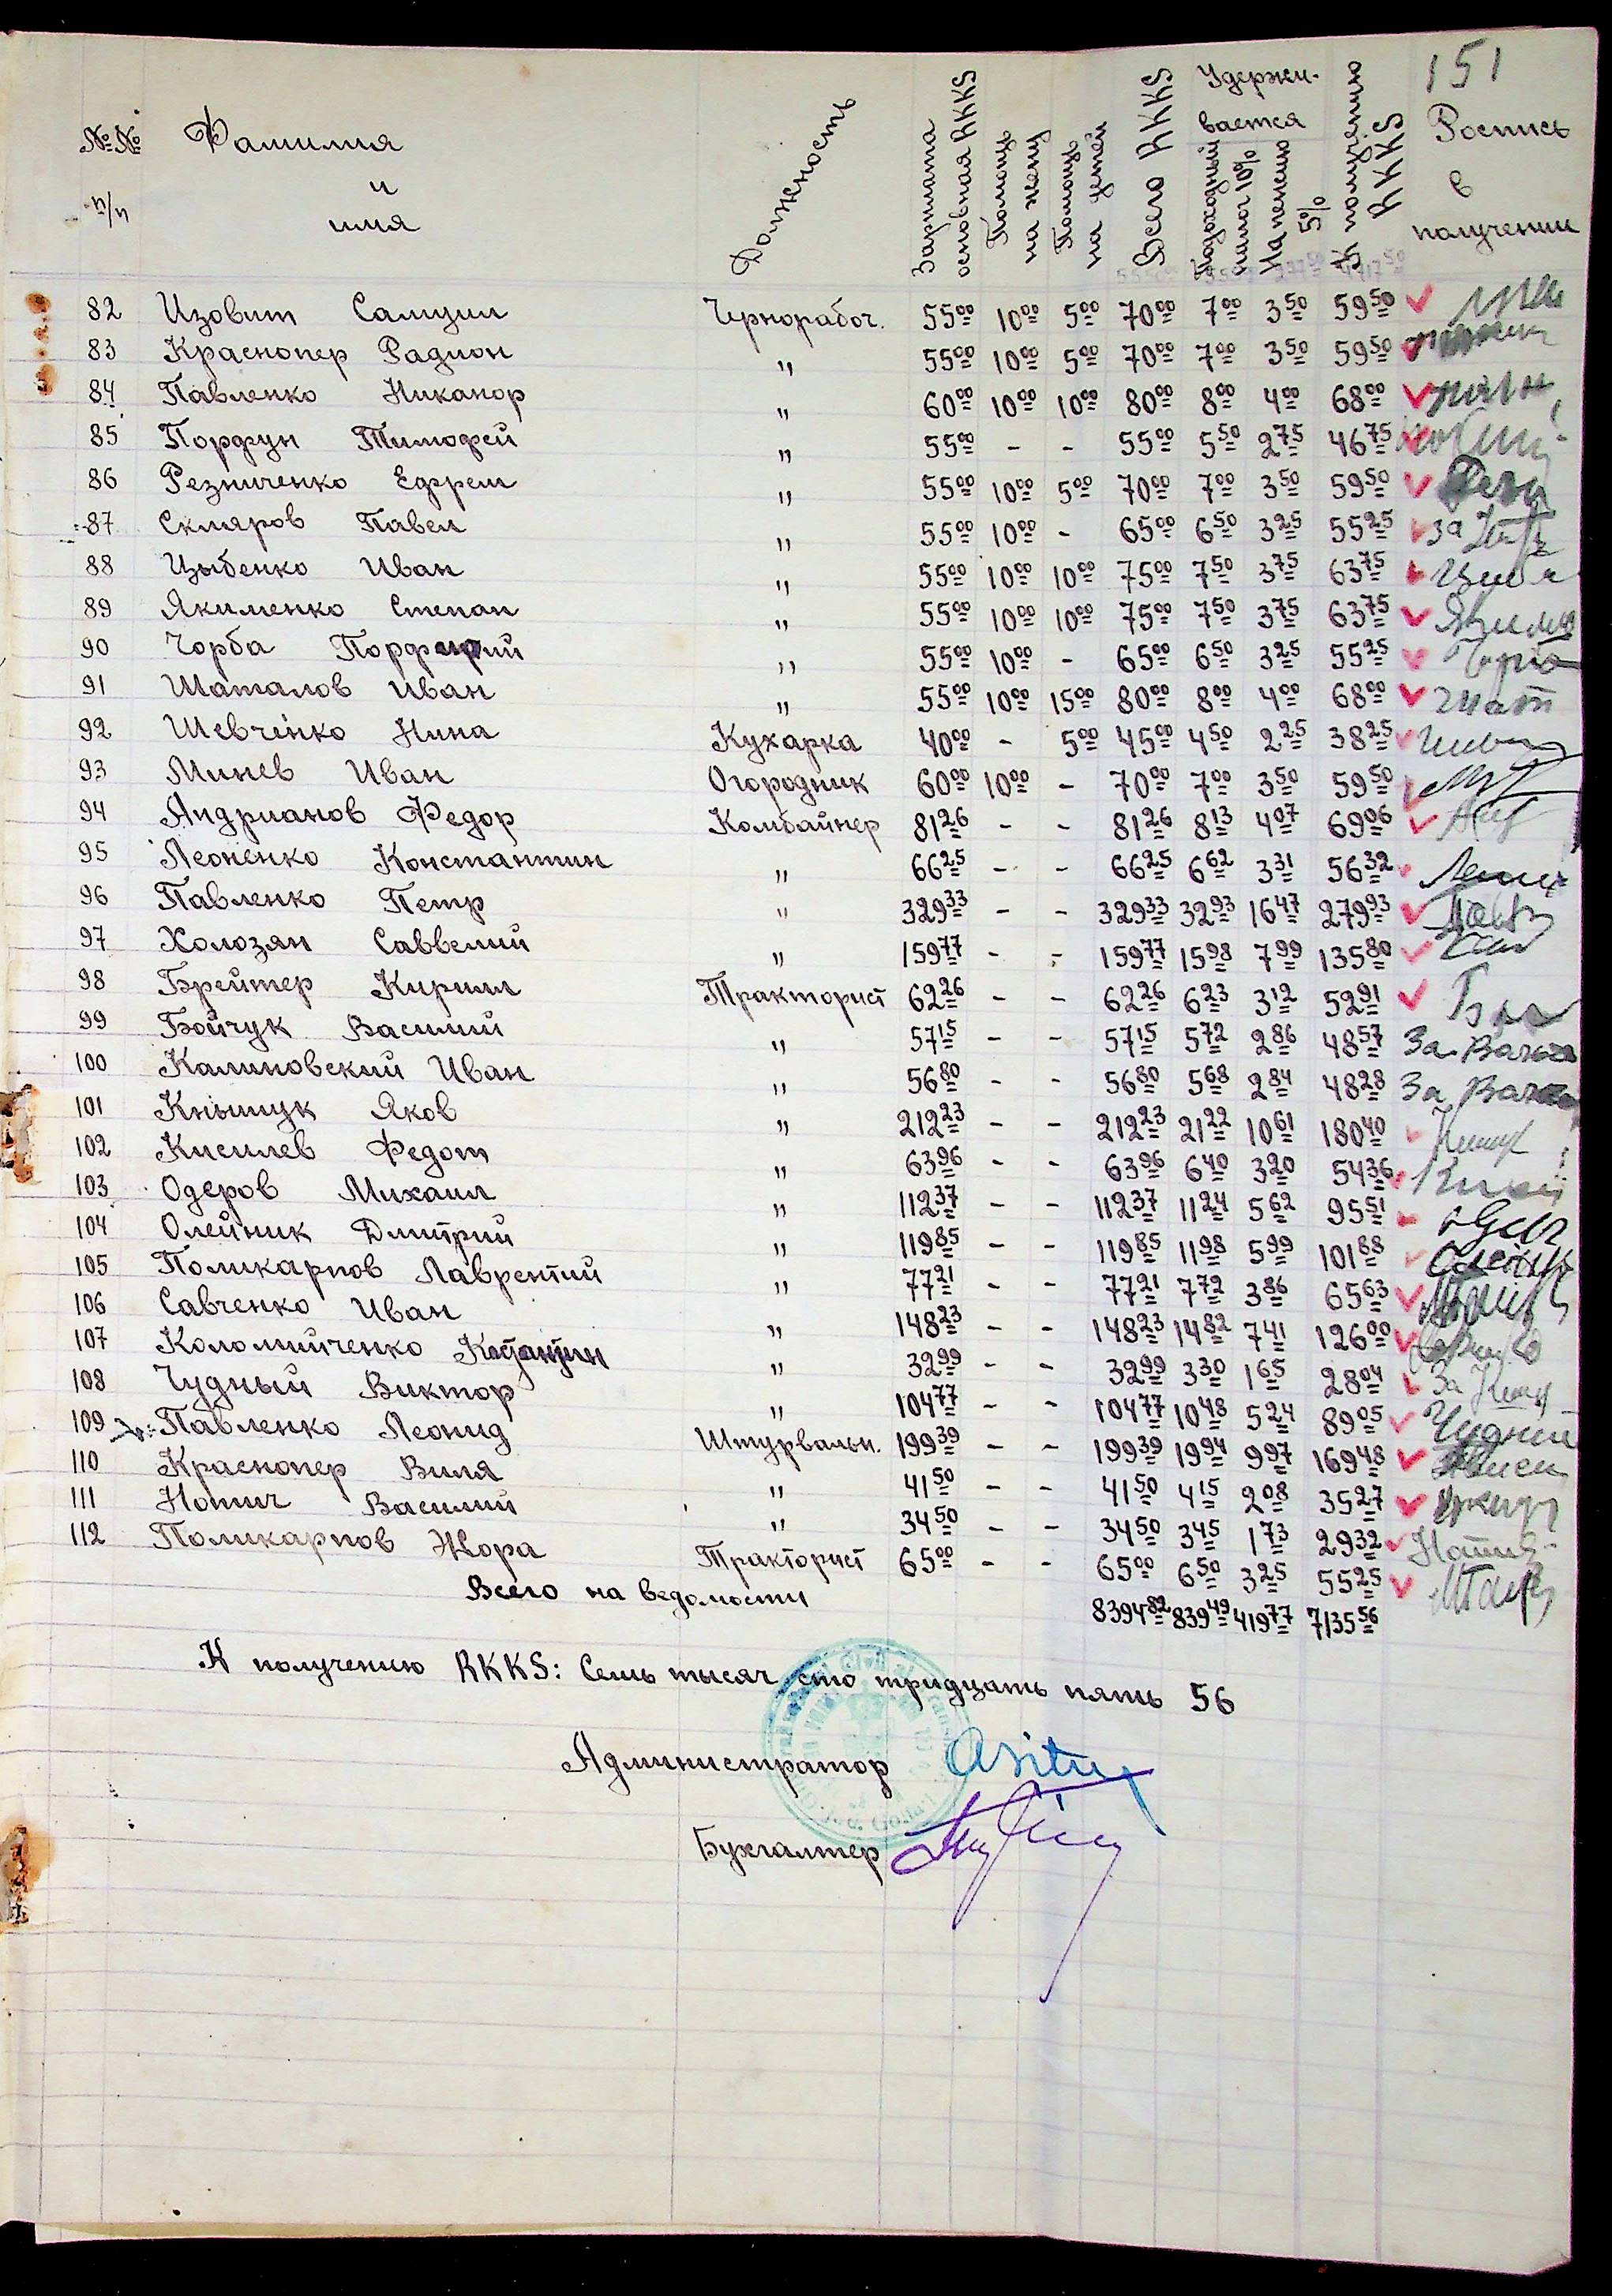 151
№№ п/п Фамилия и имя Должность Зарплата основная RKKS Помощь на жену Помощь на детей Всего RKKS Удерживается Подоходный налог 10% На пенсию 5% К получению RKKS Роспись в получении
82 Изовит Самуил Чернорабоч. 55 00 10 00 5 00 70 00 7 00 3 50 59 50
83 Краснопер Радион " 55 00 10 00 5 00 70 00 7 00 3 50 59 50
84 Павленко Никанор " 60 00 10 00 10 00 80 00 8 00 4 00 68 00
85 Порфун Тимофей " 55 00 - - 55 00 5 50 2 75 46 75
86 Резниченко Ефрем " 55 00 10 00 5 00 70 00 7 00 3 50 59 50
87 Скляров Павел " 55 00 10 00 - 65 00 6 50 3 25 55 25 За
88 Цыбенко Иван " 55 00 10 00 10 00 75 00 7 50 3 75 63 75
89 Якименко Степан " 55 00 10 00 10 00 75 00 7 50 3 75 63 75
90 Чорба Порфирий " 55 00 10 00 - 65 00 6 50 3 25 55 25
91 Шаталов Иван " 55 00 10 00 15 00 80 00 8 00 4 00 68 00
92 Шевченко Нина Кухарка 40 00 - 5 00 45 00 4 50 2 25 38 25
93 Минев Иван Огородник 60 00 10 00 - 70 00 7 00 3 50 59 50
94 Андрианов Федор Комбайнер 81 26 - - 81 26 8 13 4 07 69 06
95 Леоненко Константин " 66 25 - - 66 25 6 62 3 31 56 32
96 Павленко Петр " 329 33 - - 329 33 32 93 16 47 279 93
97 Холозян Саввелий " 159 77 - - 159 77 15 98 7 99 135 80
98 Брейтер Кирилл Тракторист 62 26 - - 62 26 6 23 3 12 52 91
99 Бойчук Василий " 57 15 - - 57 15 5 72 2 86 48 57 За
100 Калиновский Иван " 56 80 - - 56 80 5 68 2 84 48 28 За
101 Кнышук Яков " 212 23 - - 212 23 21 22 10 61 180 40
102 Кисилев Федот " 63 96 - - 63 96 6 40 3 20 54 36
103 Одеров Михаил " 112 37 - - 112 37 11 24 5 62 95 51
104 Олейник Дмитрий " 119 85 - - 119 85 11 98 5 99 101 88
105 Поликарпов Лаврентий " 77 21 - - 77 21 7 72 3 86 65 63
106 Савченко Иван " 148 23 - - 148 23 14 82 7 41 126 00
107 Коломийченко " 32 99 - - 32 99 3 30 1 65 28 04 За
108 Чудный Виктор " 104 77 - - 104 77 10 48 5 24 89 05
109 Павленко Леонид Штурвальн. 199 39 - - 199 39 19 94 9 97 169 48
110 Краснопер Виля " 41 50 - - 41 50 4 15 2 08 35 27
111 Нотич Василий " 34 50 - - 34 50 3 45 1 73 29 32
112 Поликарпов Жора Тракторист 65 00 - - 65 00 6 50 3 25 55 25
Всего на ведомости 8394 82 839 49 419 77 7135 56
К получению RKKS: Семь тысяч сто тридцать пять 56
Администратор
Бухгалтер